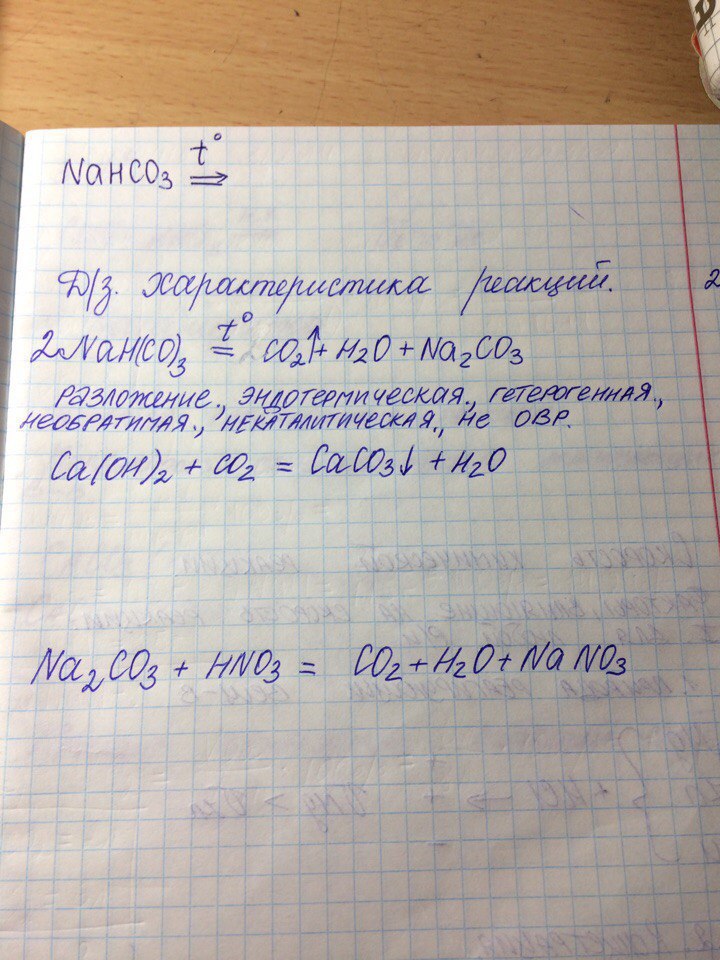 NaHCO₃ t° ⇒
Д/з. характеристика реакций.
2NaH(CO)₃ t° = CO₂↑ + H₂O + Na₂CO₃
разложение., эндотермическая., гетерогенная.,
необратимая., некаталитическая., не ОВР.
Ca(OH)₂ + CO₂ = CaCO₃↓ + H₂O
Na₂CO₃ + HNO₃ = CO₂ + H₂O + NaNO₃
2